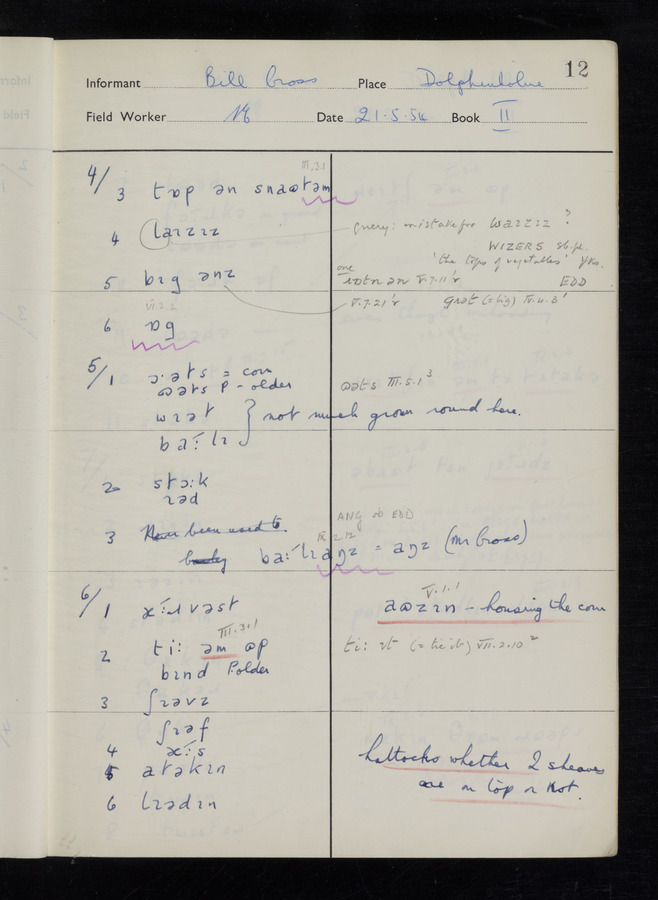 12
Informant Bill Cross Place Dolphinholme
Field Worker Date 21.5.54 Book II
III.3.1
4/3 tɒp ən snaɷtəm
4 query: mistake for waɪzɪz ?
WIZERS sb.pl.
'the tops of vegetables' Yks.
EDD
5 bɪg ənz
one
V.7.11
V.7.21 grət (= big) IV.4.3
VI.2.2
6 ɒg
5/1 ɔ·əts = corn
ɷəts P - older
ɷəts III.5.1
wɪət
ba:lɪ } not much grown round here.
2 stɔ:k
rəd
ANG sb EDD
3 Never been used to.
ba:lɪ aŋz = aŋz (Mr Cross)
6/1
V.1.1
aɷzɪn - housing the corn
III.3.1
2 ti: əm ɷp
bɪnd P. older
ti: ɪt (= tie it) VII.2.10
3 ʃɪəvz
ʃɪəf
4
5 atəkɪn
hattocks whether 2 sheaves
are on top or not.
6 lɪədɪn